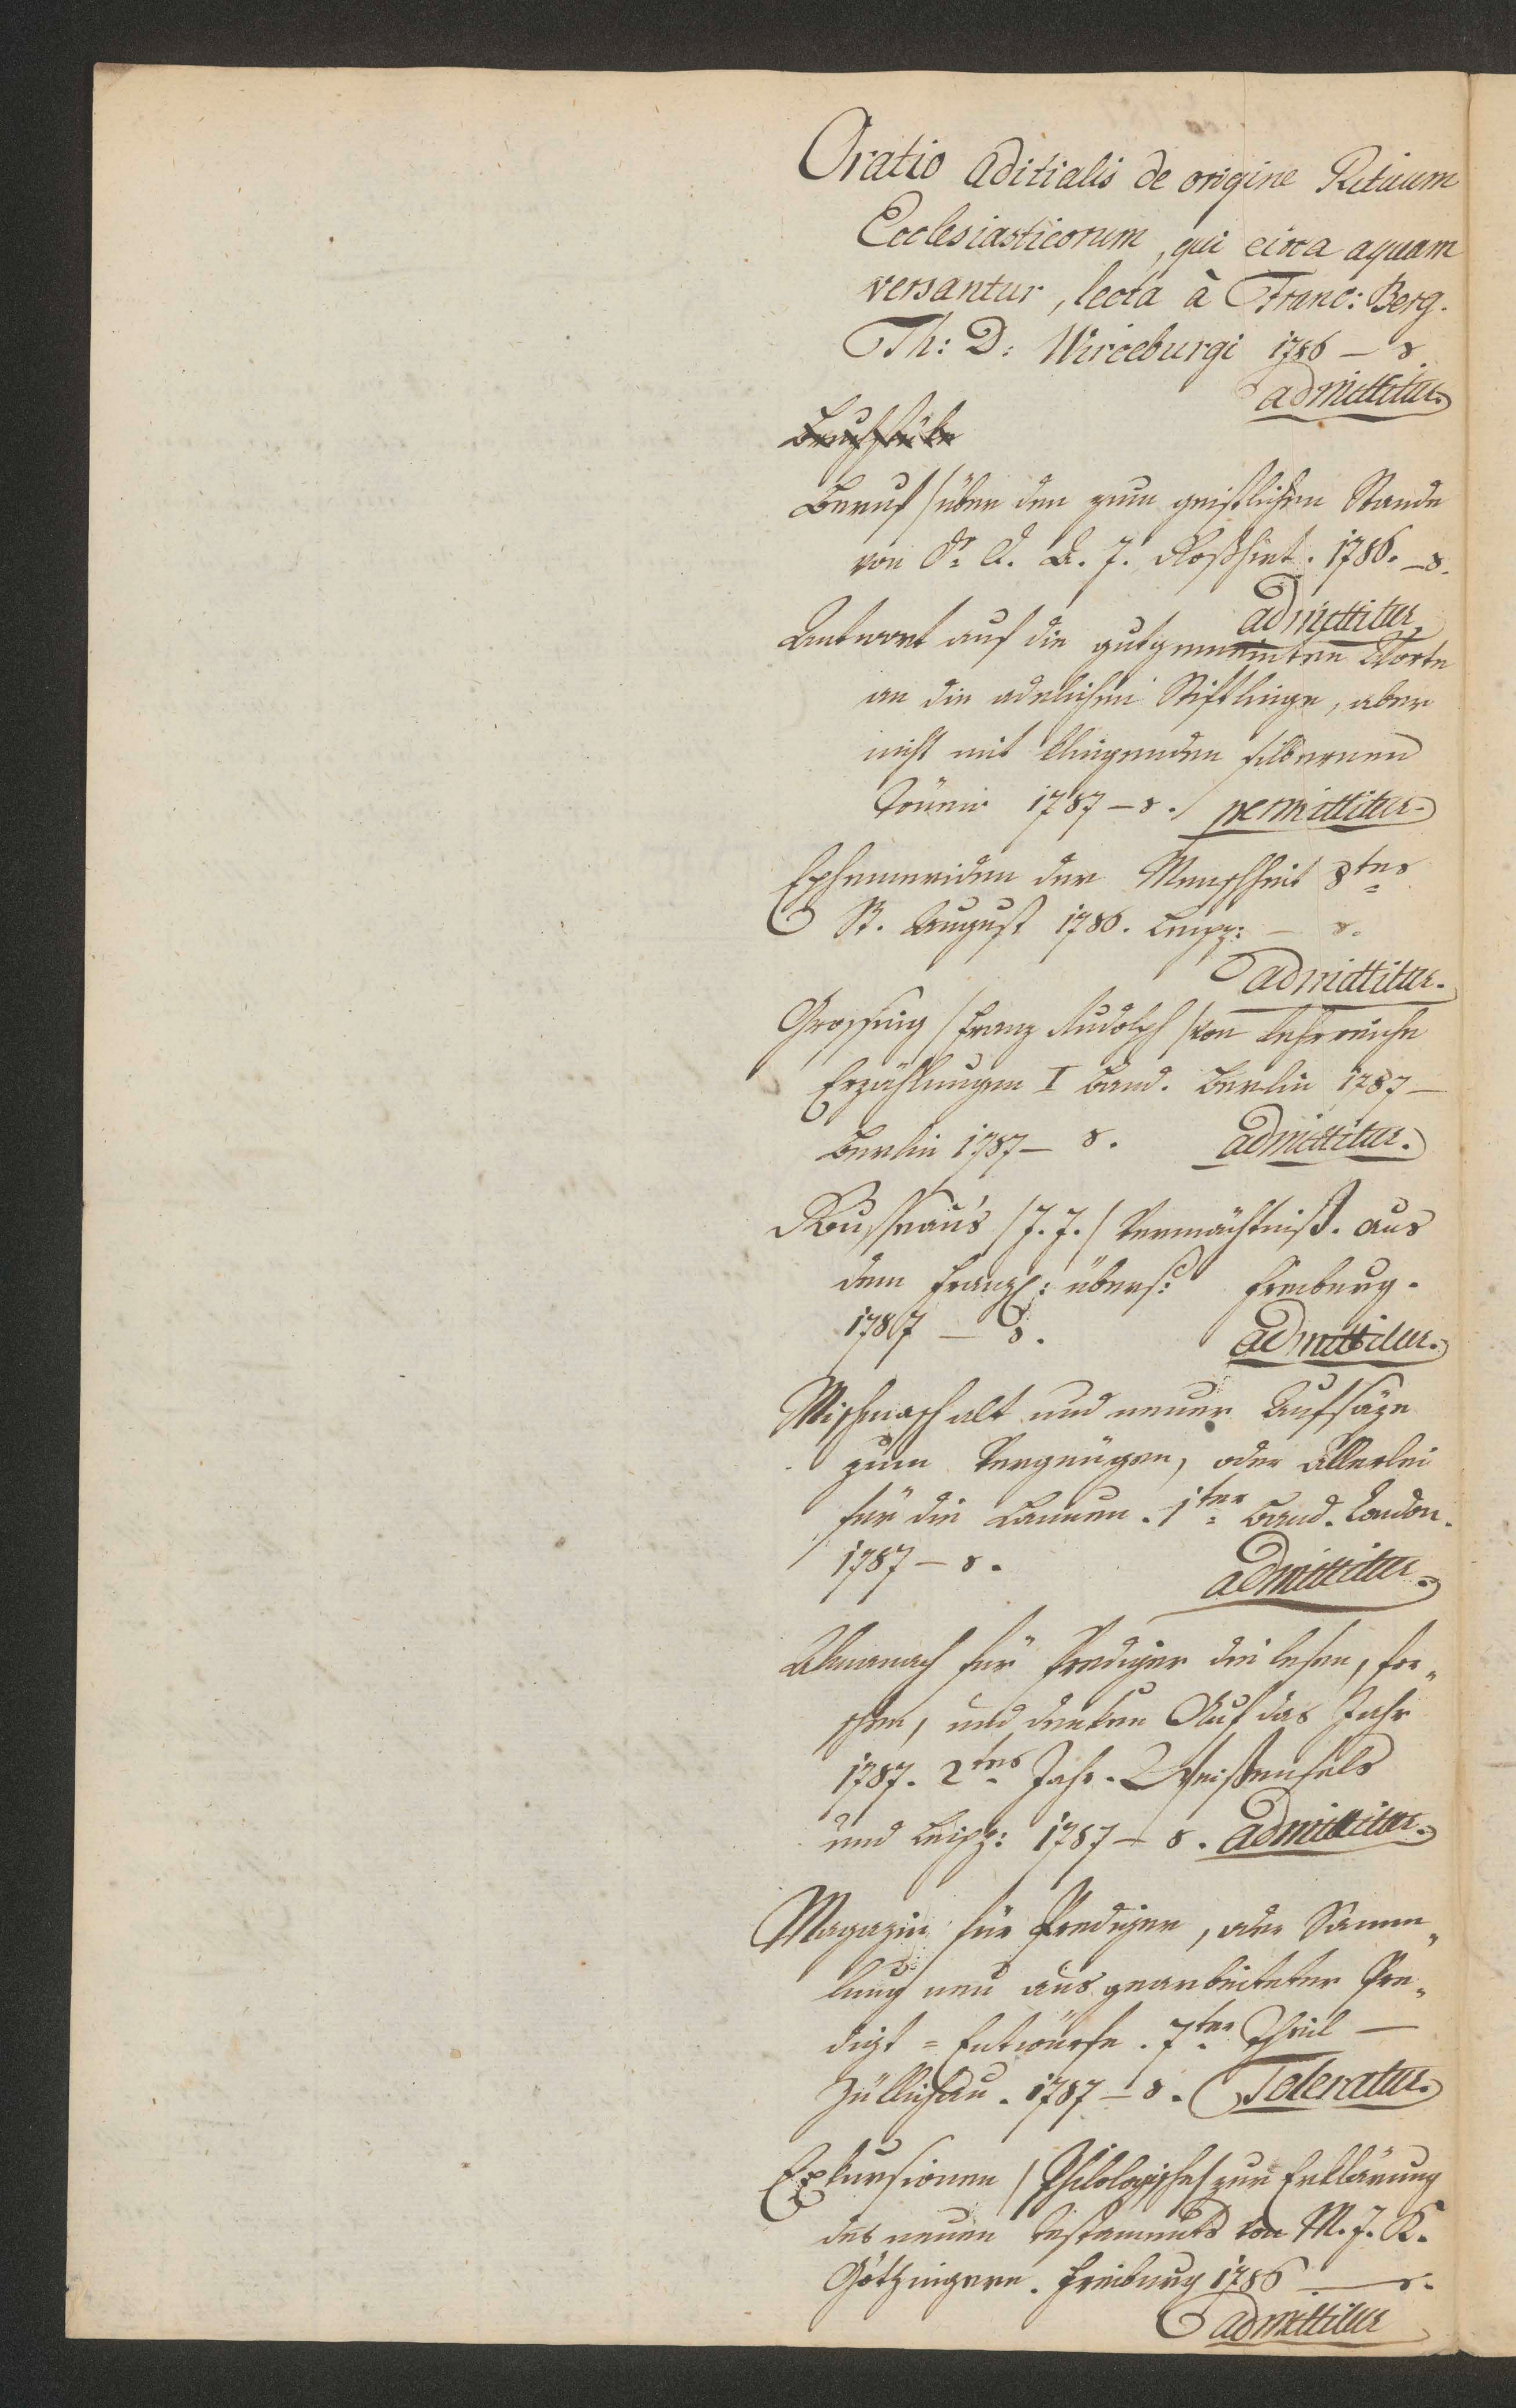 Oratio aditialis de origine Rituum
Ecclesiasticorum, qui circa aquam
versantur, lecta à Franc: Berg.
Th: D: Wirceburgi 1786 – 8.
admittitur
Beruf über den zum geistlichen Stande
von Dr. A. J. Roßhirt. 1786. – 8.
admittitur
Antwort auf die gutgemeinten Worte
an die adelichen Stiftlinge, aber
nicht mit klingenden silbernen
1787 – 8. permittitur.
Ephemeriden der Menschheit 8tes
St. August 1786. Leipz: – 8.
admittitur.
Grossing /Franz Rudolph/ von lehrreiche
Erzählungen I Band. Berlin 1787 –
Berlin 1787 – 8. admittitur.
Rousseau's /J. J./ Vermächtniß. aus
dem Franz: übers: Freiburg.
1787 – 8. admittitur.
Mischmasch alt und neuer Aufsäze
zum Vergnügen, oder Allerlei
für die Launen. 1ter Band. London.
1787 – 8. admittitur.
Almanach für Prediger die lesen, for„
schen, und denken Auf das Jahr
1787. 2tes Jahr. Weißenfels
und Leipz: 1787 – 8. admittitur.
Magazin für Prediger, oder Samm„
lung neu ausgearbeiteter Pre„
digt = Entwürfe. 7ter Theil –
Züllichau. 1787 – 8. Toleratur.
Exkursionen /Philologische/ zur Erklärung
des neuen Testaments von M. J. K.
Götzingern. Freiburg 1786 – 8.
admittitur